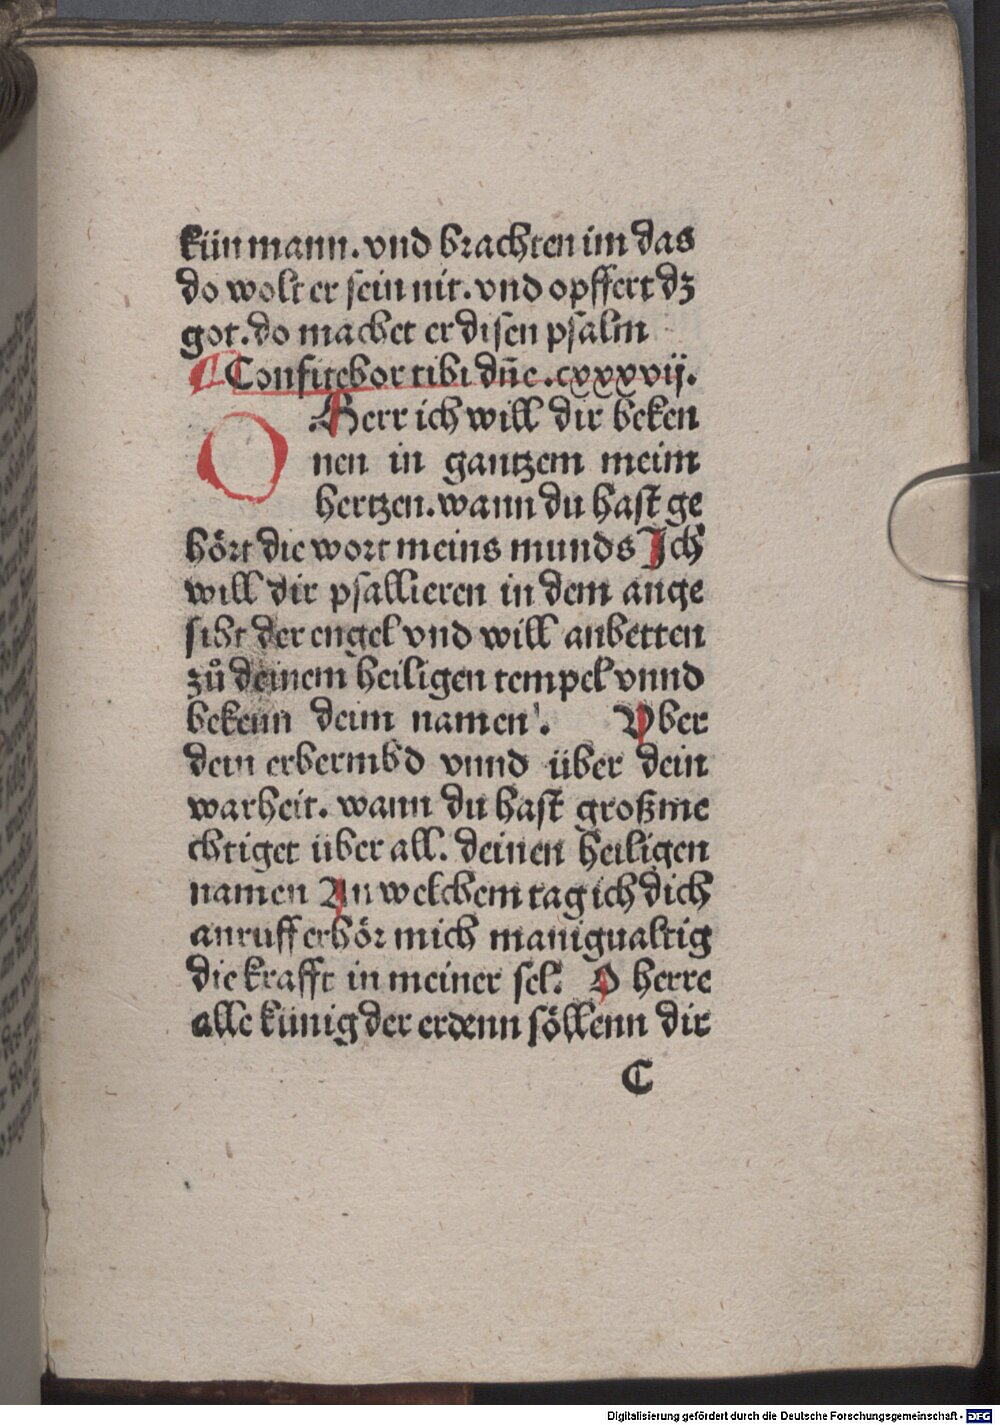 kün mann. vnd brachten im das
do wolt er sein nit. vnd opffert dz
got. do machet er disen psalm
Confitebor tibi dn̄e .cxxxvij.
O Herr ich will dir beken
nen in gantzem meim
hertzen. wann du hast ge
hört die wort meins munds Jch
will dir psallieren in dem ange
siht der engel vnd will anbetten
zů deinem heiligen tempel vnnd
bekenn deim namen'. Vber
dein erbermb'd vnnd über dein
warheit. wann du hast großme
chtiget über all. deinen heiligen
namen An welchem tag ich dich
anruff erhör mich manigualtig
die krafft in meiner sel. O herre
alle künig der erdenn söllenn dir
C
Digitalisierung gefördert durch die Deutsche Forschungsgemeinschaft - DFG